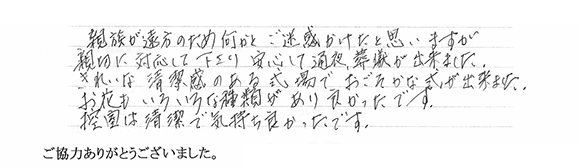 親族が遠方のため何かとご迷惑かけたと思いますが
親切に対応して下さり安心して通夜、葬儀が出来ました。
きれいな清潔感のある式場でおごそかな式が出来ました。
お花もいろいろな種類があり良かったです。
控室は清潔で気持ち良かったです。
ご協力ありがとうございました。